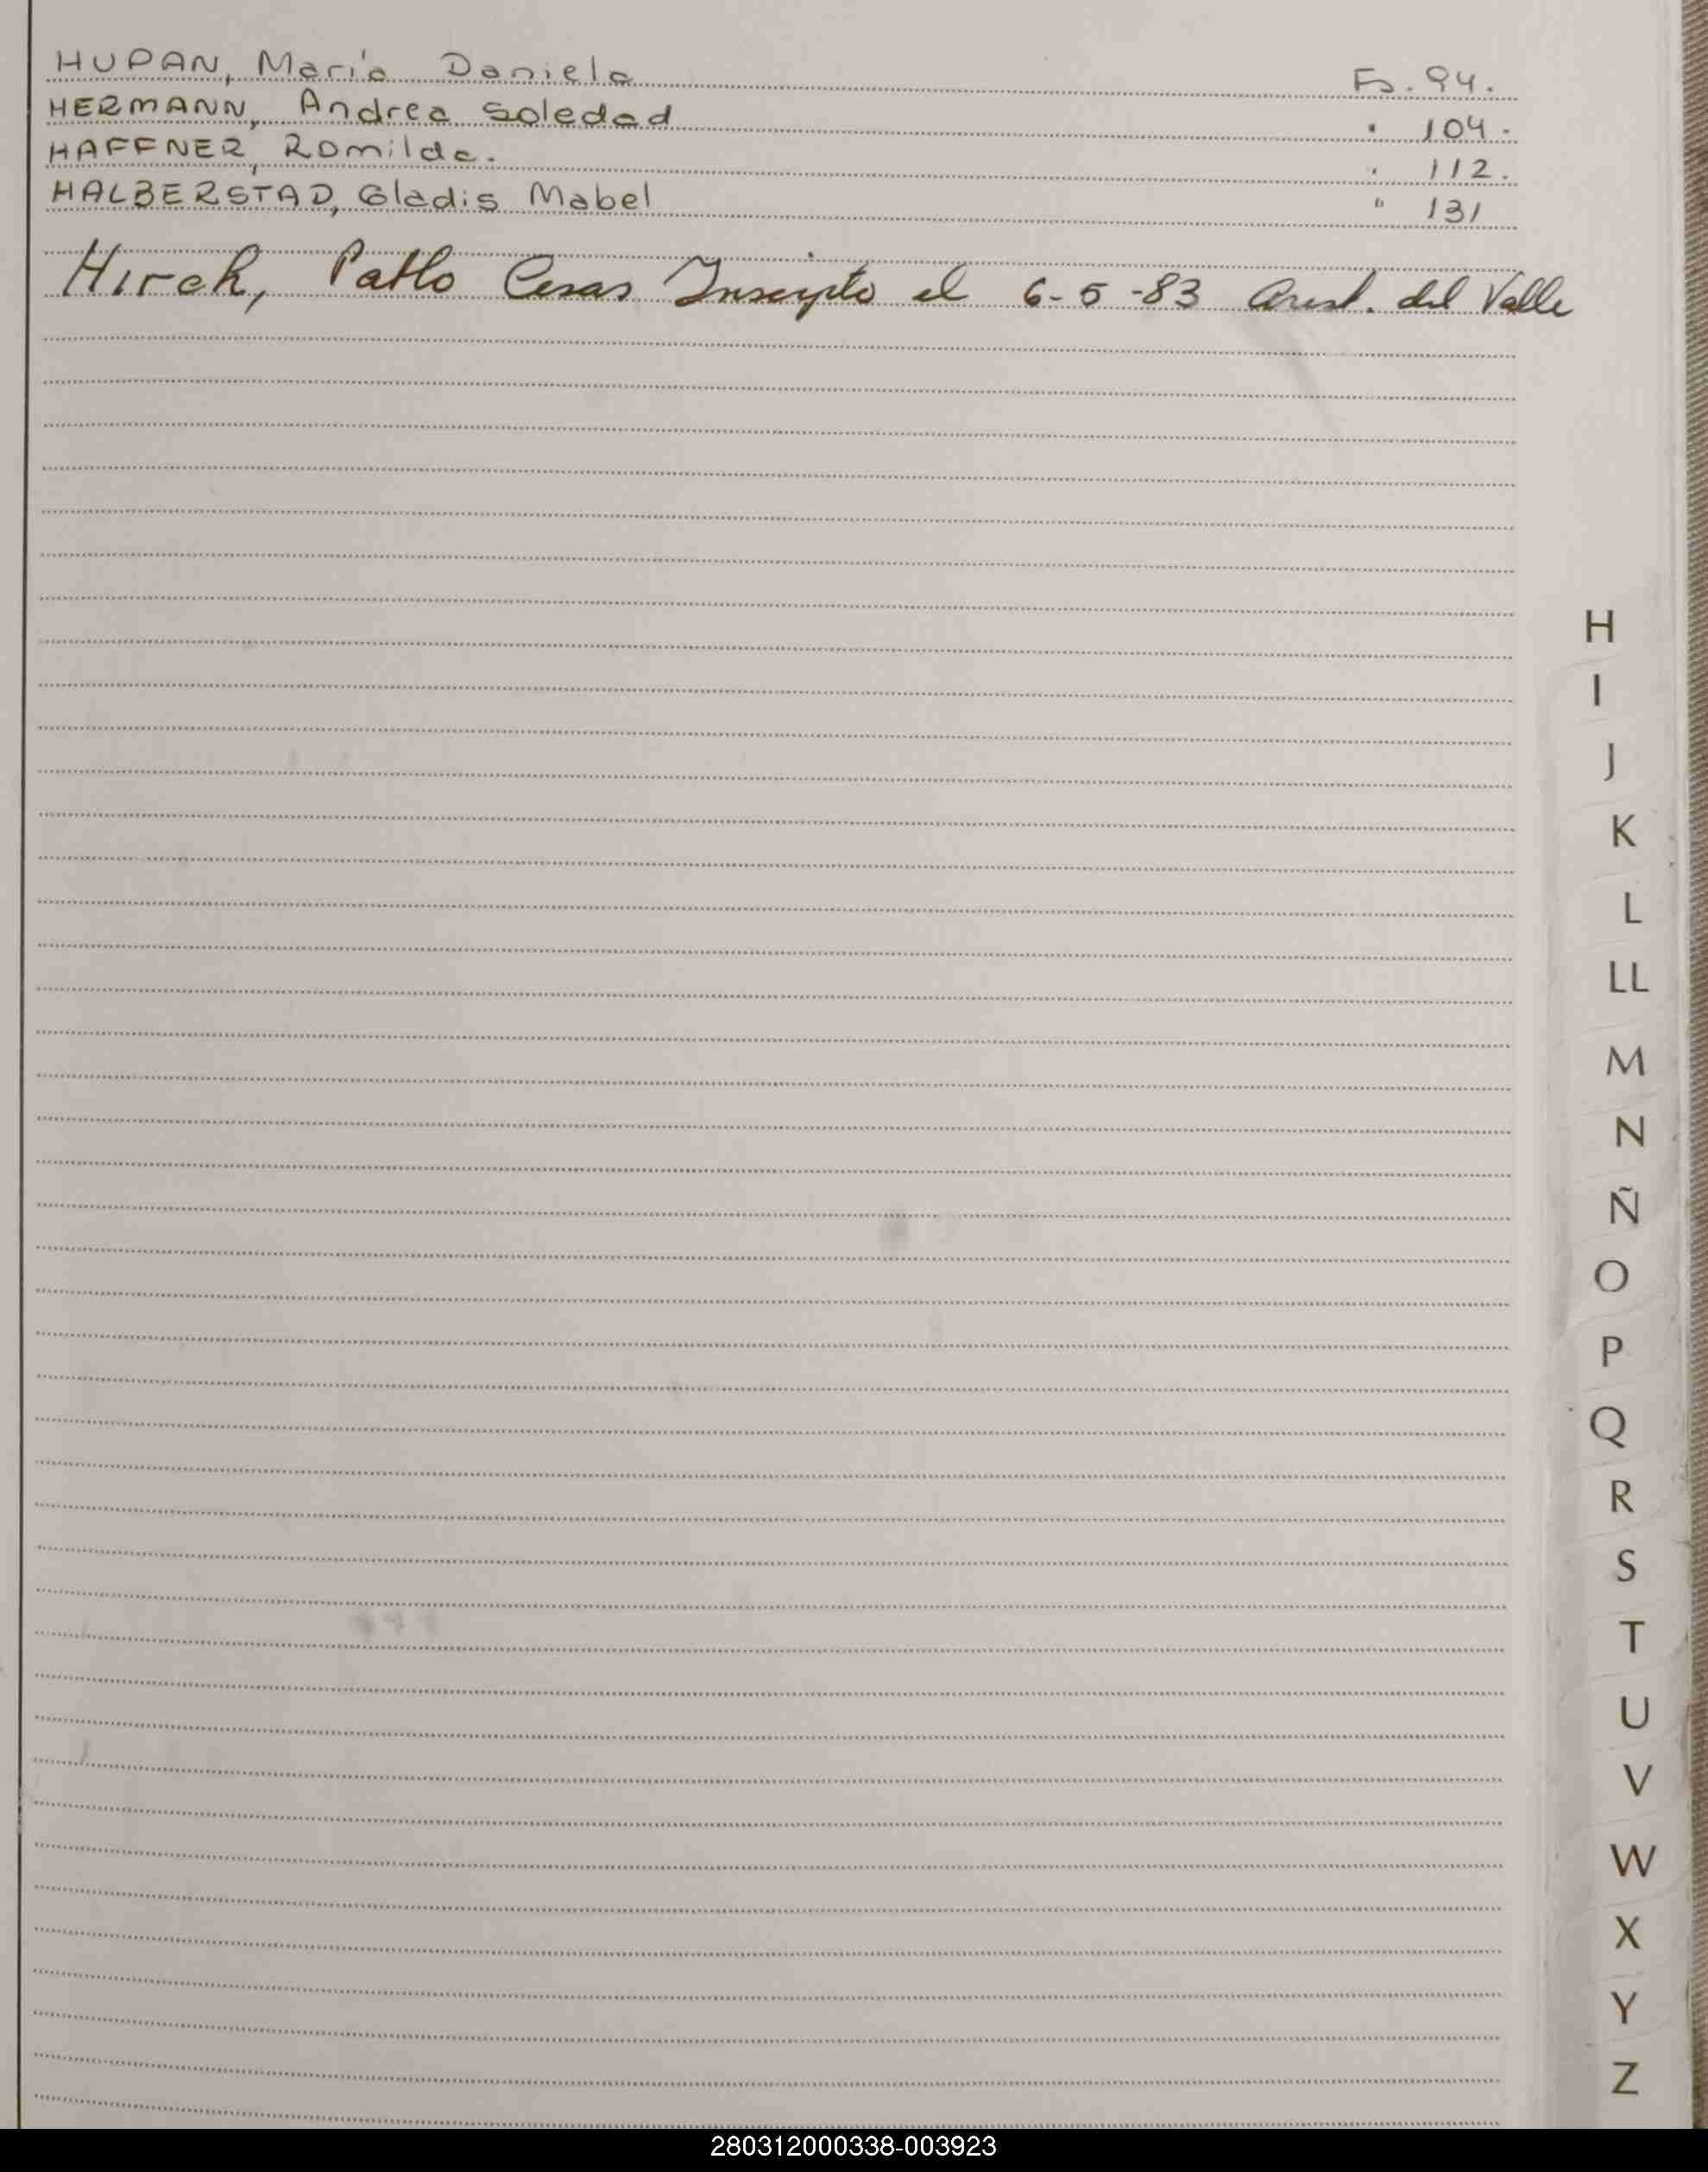 HUPAN, María Daniela Fs. 94.
HERMANN, Andrea Soledad " 104.
HAFFNER, Romilda. " 112.
HALBERSTAD, Gladis Mabel " 131
Hirch, Pablo Cesar Inscripto el 6-5-83 Arist. del Valle
H
I
J
K
L
LL
M
N
Ñ
O
P
Q
R
S
T
U
V
W
X
Y
Z
280312000338-003923